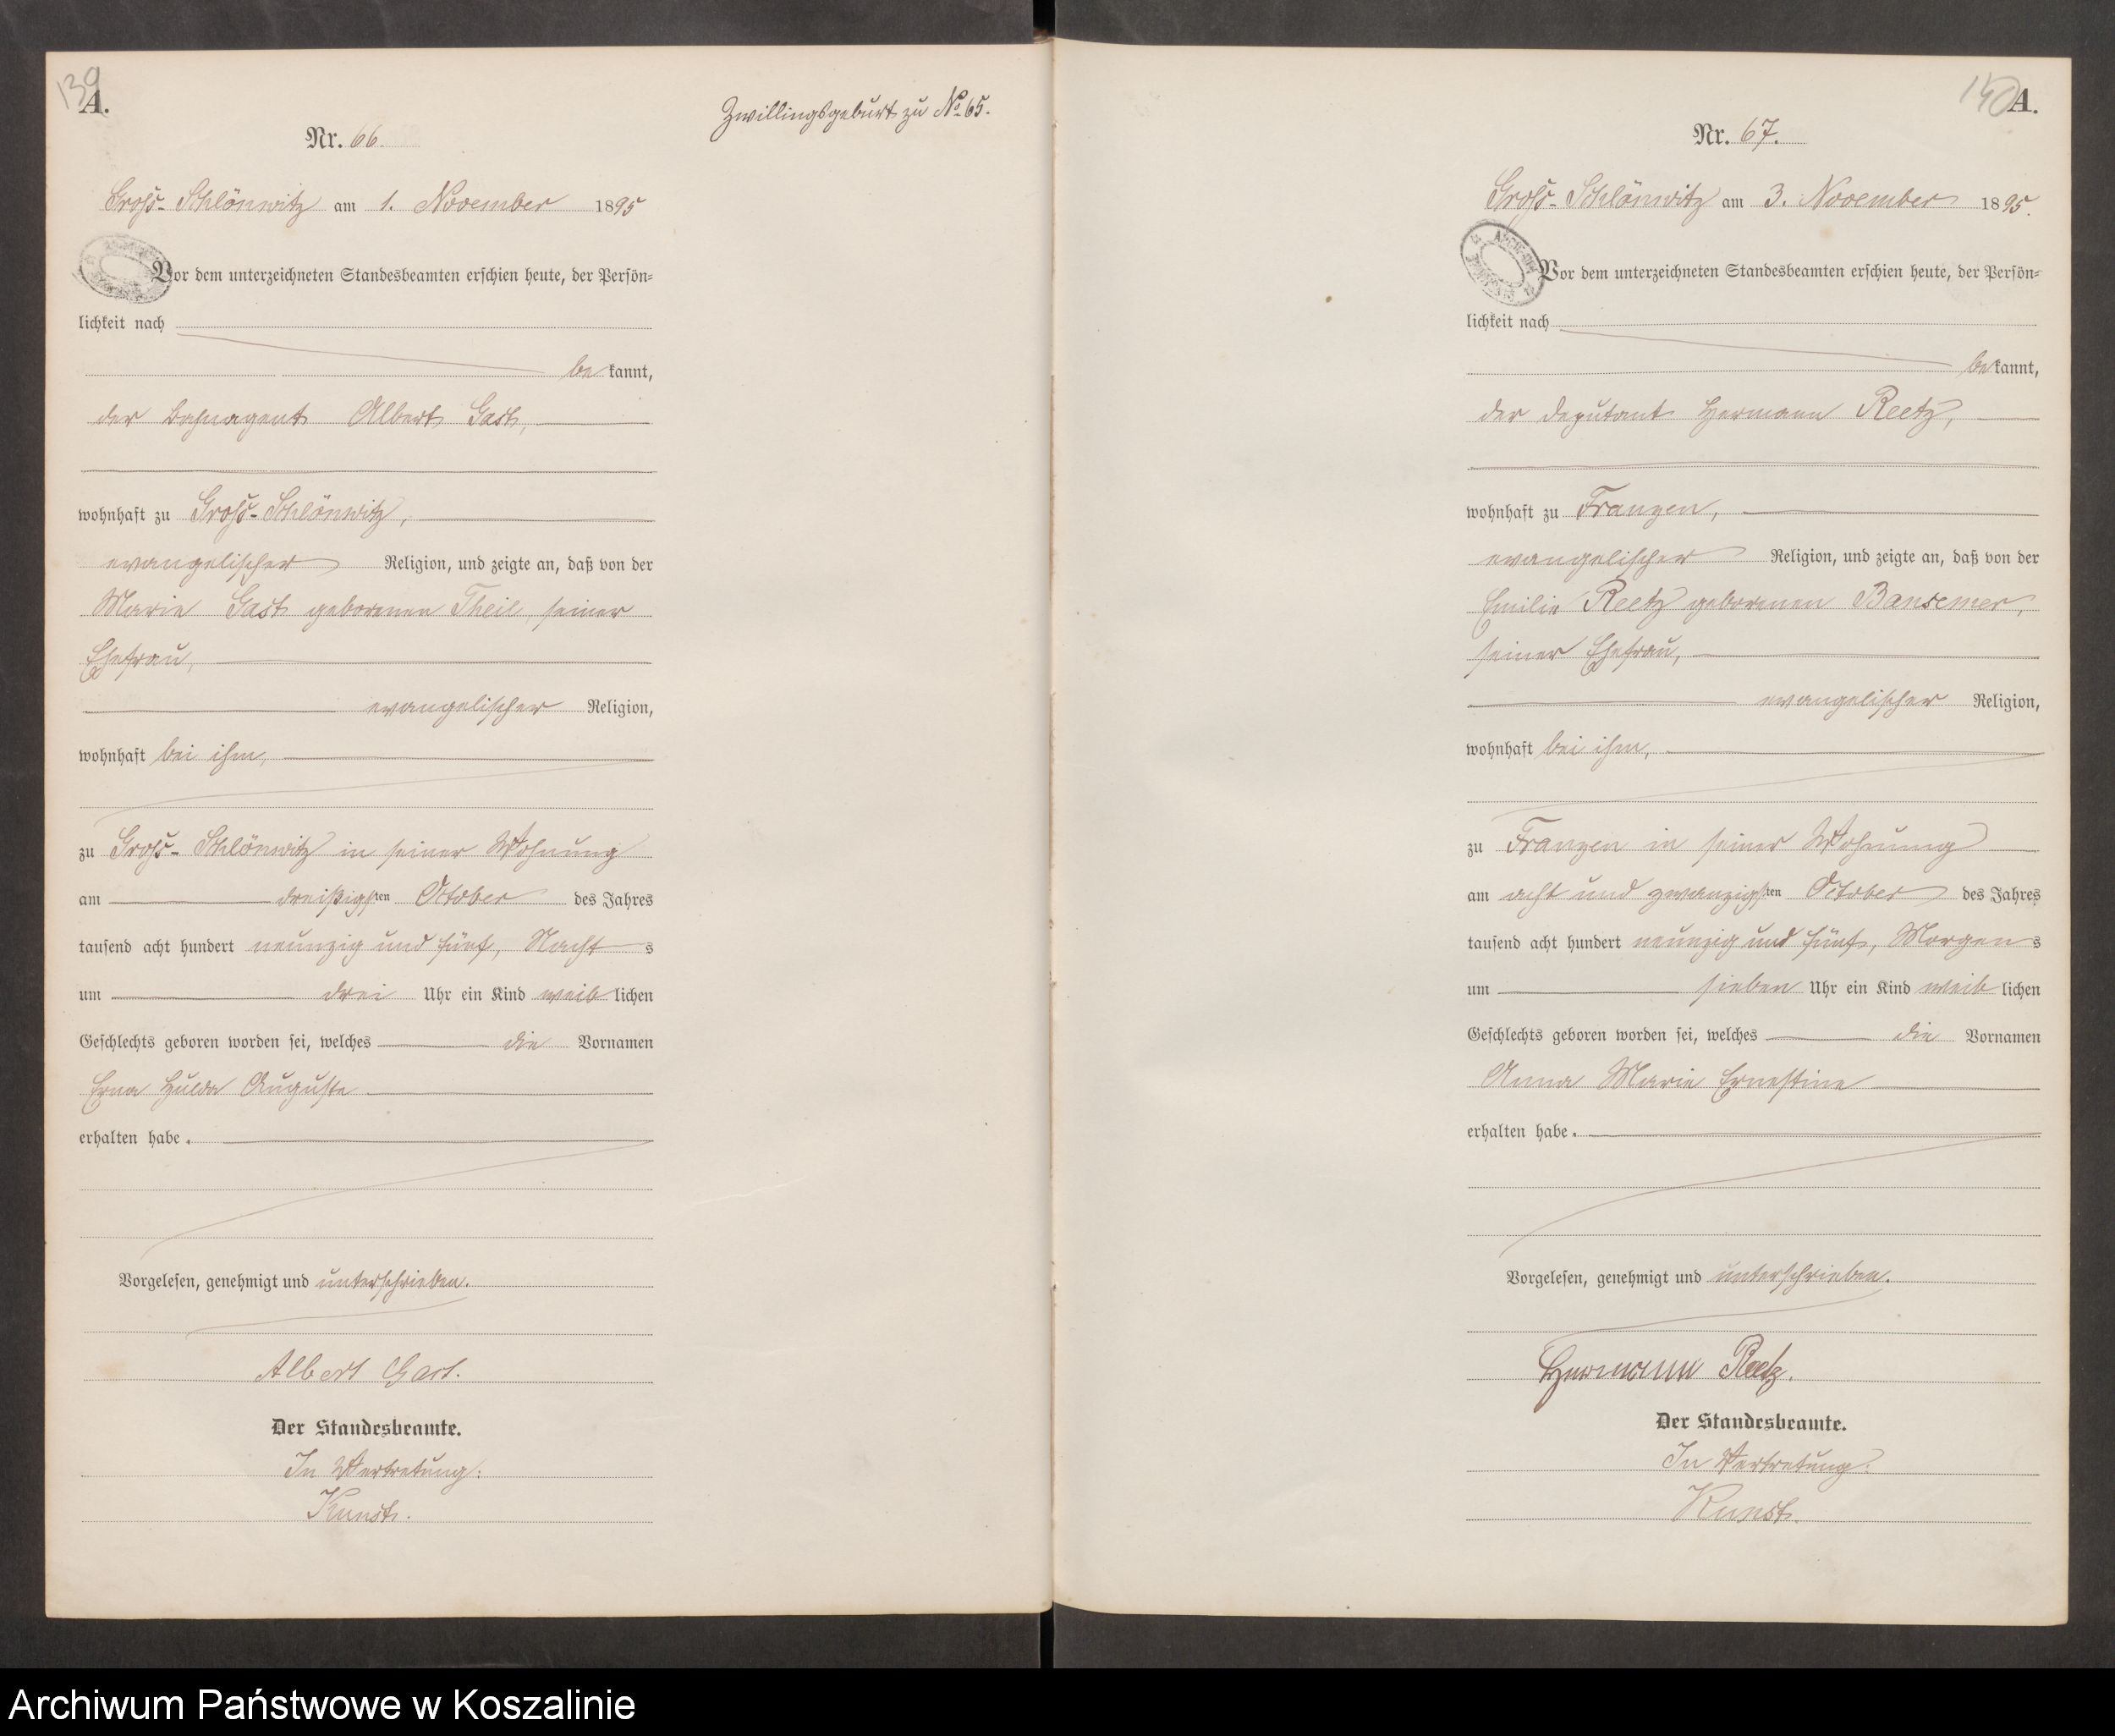 139
A.
Zwillingsgeburt zu No 65.
Nr. 66.
Gross-Schlönwitz am 1. November 1895
Vor dem unterzeichneten Standesbeamten erschien heute, der Persön=
lichkeit nach
bekannt,
der Bahnagent Albert Gast,
wohnhaft zu Gross-Schlönwitz,
evangelischer Religion, und zeigte an, daß von der
Marie Gast geborenen Theil, seiner
Ehefrau,
evangelischer Religion,
wohnhaft bei ihm,
zu Gross-Schlönwitz in seiner Wohnung
am dreißigsten October des Jahres
tausend acht hundert neunzig und fünf, Nachts
um drei Uhr ein Kind weiblichen
Geschlechts geboren worden sei, welches die Vornamen
Erna Hulda Auguste
erhalten habe.
Vorgelesen, genehmigt und unterschrieben.
Albert Gast.
Der Standesbeamte.
In Vertretung:
Kunst.
140
A.
Nr. 67.
Gross-Schlönwitz am 3. November 1895.
Vor dem unterzeichneten Standesbeamten erschien heute, der Persön=
lichkeit nach
bekannt,
der Deputant Hermann Reetz,
wohnhaft zu Franzen,
evangelischer Religion, und zeigte an, daß von der
Emilie Reetz geborenen Bansemer,
seiner Ehefrau,
evangelischer Religion,
wohnhaft bei ihm,
zu Franzen in seiner Wohnung
am acht und zwanzigsten October des Jahres
tausend acht hundert neunzig und fünf, Morgens
um sieben Uhr ein Kind weiblichen
Geschlechts geboren worden sei, welches die Vornamen
Anna Marie Ernestine
erhalten habe.
Vorgelesen, genehmigt und unterschrieben.
Hermann Reetz.
Der Standesbeamte.
In Vertretung:
Kunst.
Archiwum Państwowe w Koszalinie